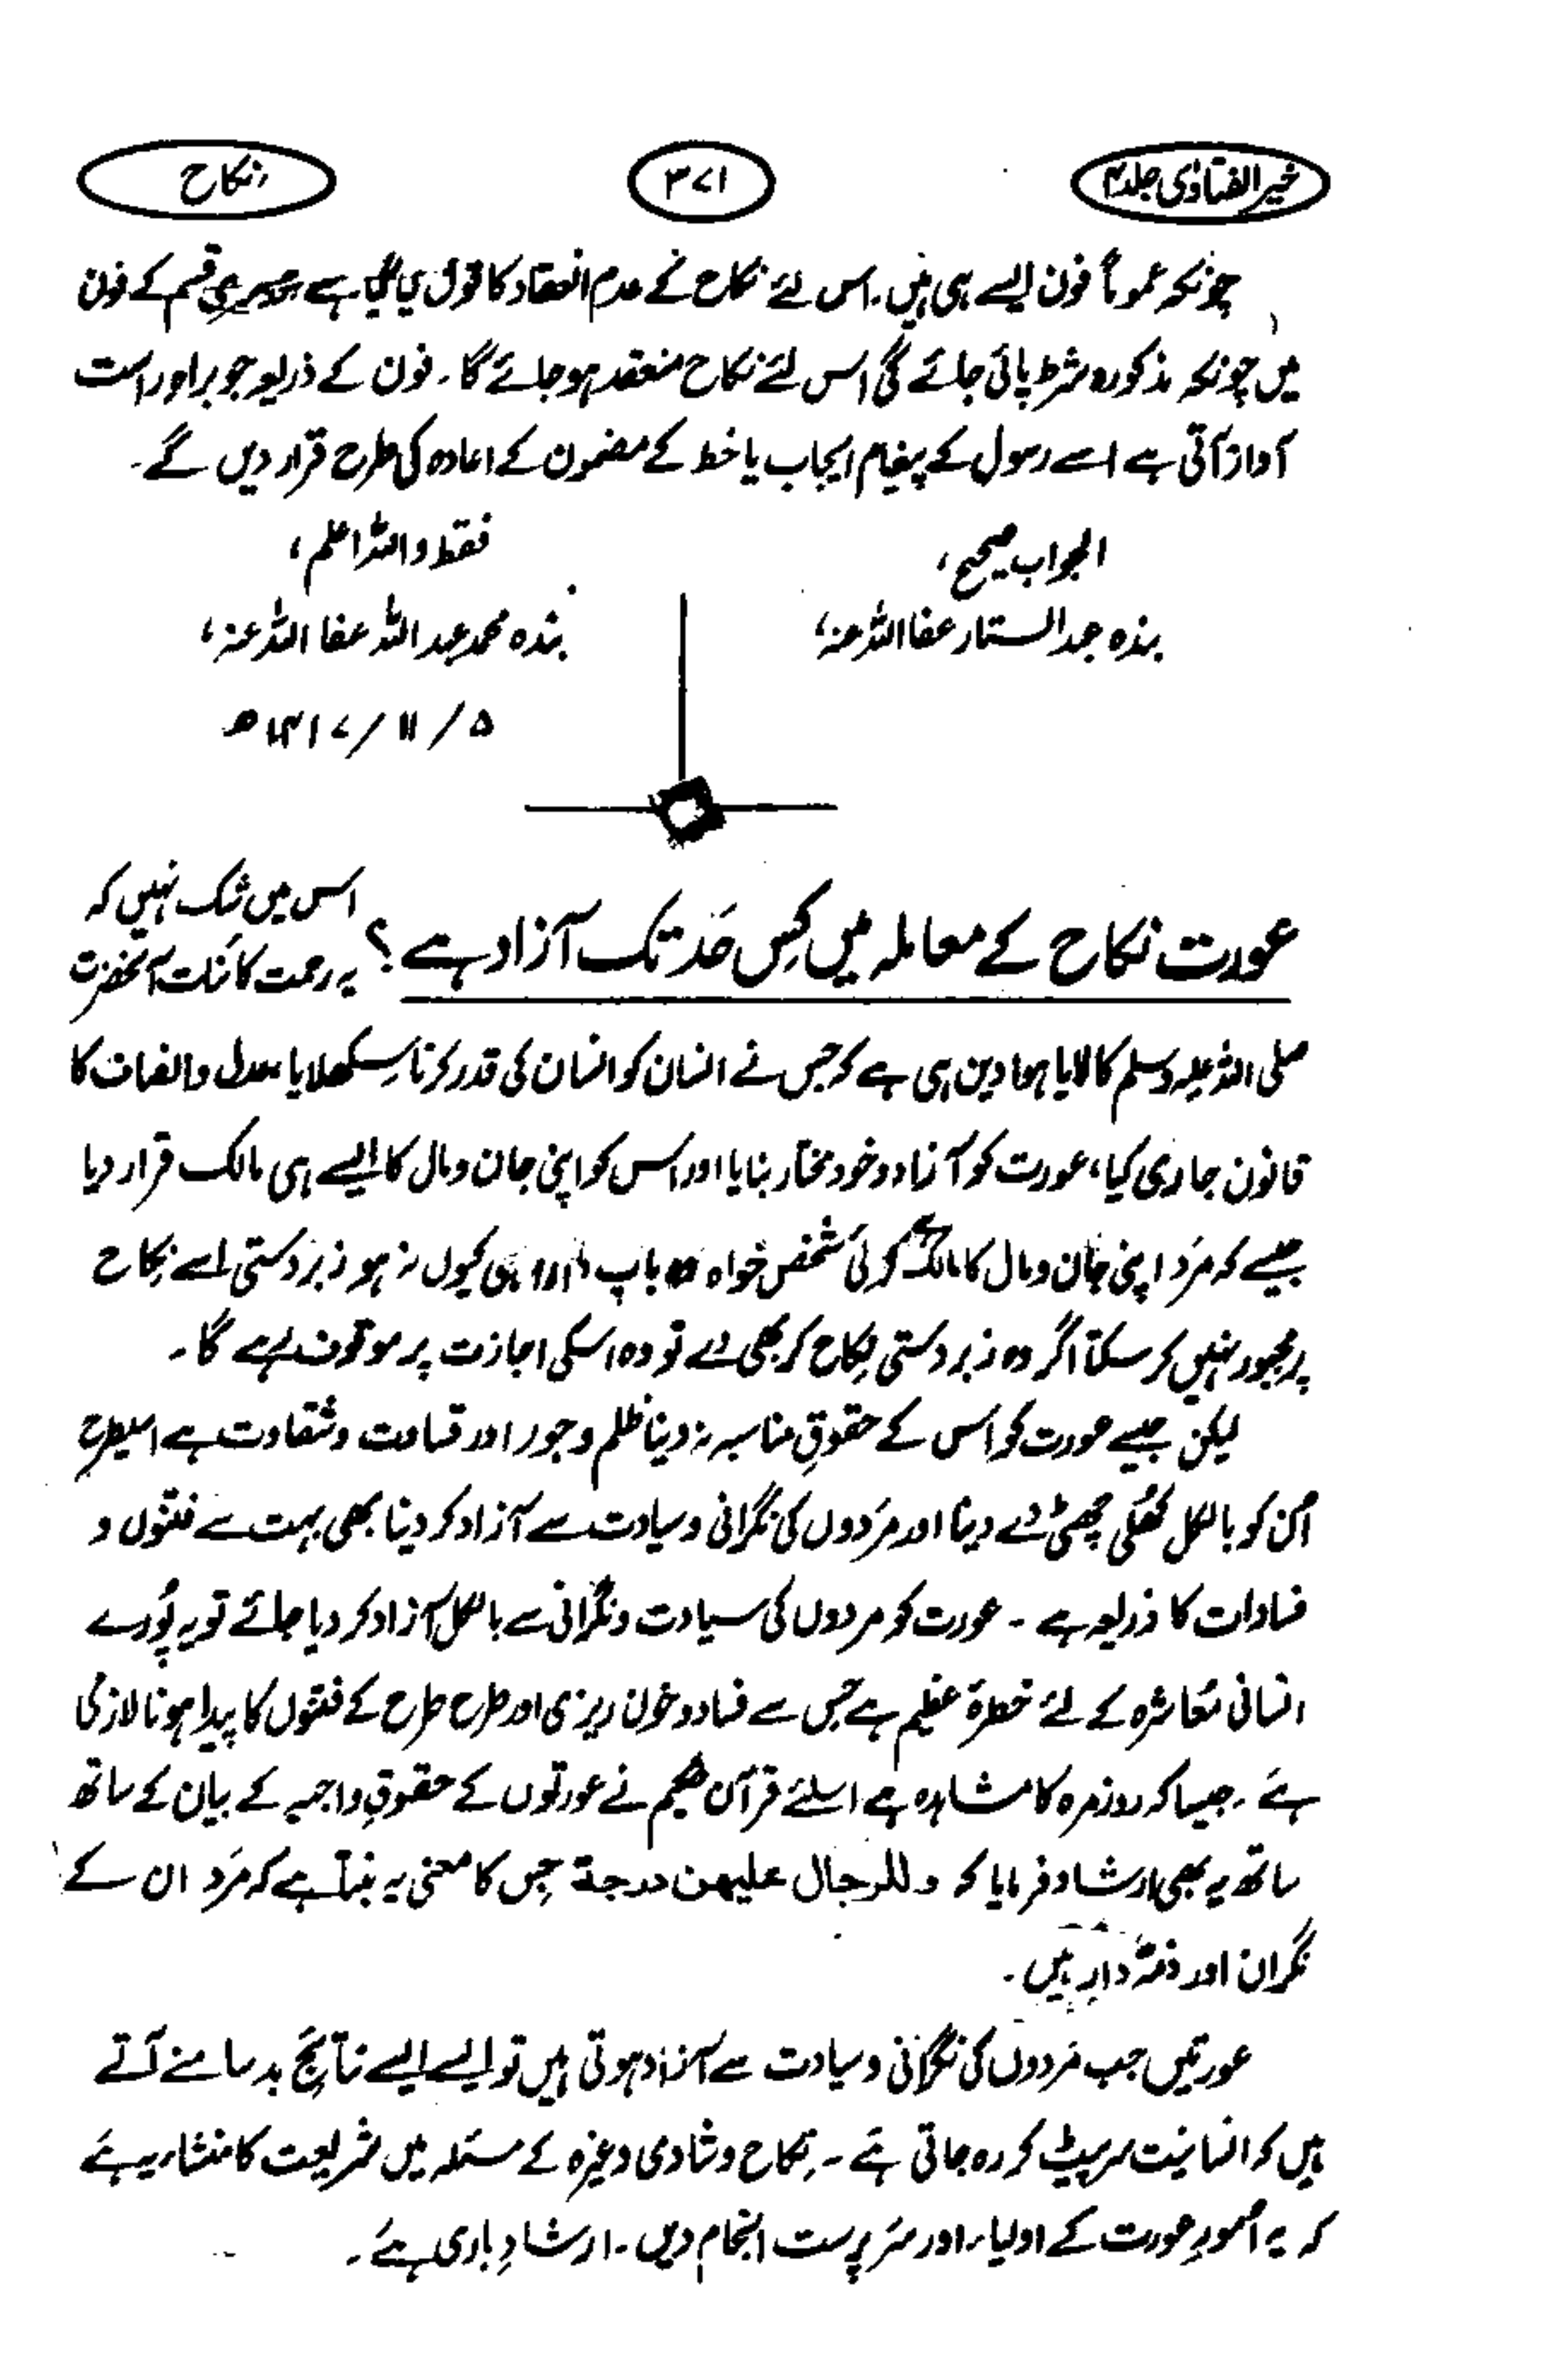 خیر الفتاوٰی جلد ۴
۳۷۱
نکاح
چونکہ عموماً فون ایسے ہی ہیں۔ اس لئے نکاح کے عدم انعقاد کا قول کیا گیا ہے قسم کے فون
میں چونکہ مذکورہ شرط پائی جائے گی اس لئے نکاح منعقد ہو جائے گا۔ فون کے ذریعہ جو براہ راست
آواز آتی ہے اسے رسول کے پیغام ایجاب یا خط کے مضمون کے اعادہ کی طرح قرار دیں گے۔
الجواب صحیح،
بندہ عبد الستار عفا اللہ عنہ،
فقط واللہ اعلم،
بندہ محمد عبد اللہ عفا اللہ عنہ،
۵ / ۱۱ / ۱۴۱۷ھ
عورت نکاح کے معاملہ میں کس حد تک آزاد ہے؟
اس میں شک نہیں کہ
یہ رحمت کائنات آنحضرت
صلی اللہ علیہ وسلم کا لایا ہوا دین ہی ہے کہ جس نے انسان کو انسان کی قدر کرنا سکھلایا عدل و انصاف کا
قانون جاری کیا، عورت کو آزاد و خود مختار بنایا اور اس کو اپنی جان و مال کا ایسے ہی مالک قرار دیا
جیسے کہ مرد اپنی جان و مال کا مالک ہے کوئی شخص خواہ وہ باپ دادا ہی کیوں نہ ہو زبردستی اسے نکاح
پر مجبور نہیں کر سکتا اگر وہ زبردستی نکاح کر بھی دے تو وہ اسکی اجازت پر موقوف رہے گا۔
لیکن جیسے عورت کو اس کے حقوقِ مناسبہ نہ دینا ظلم و جور اور قساوت و شقاوت ہے اسیطرح
اُن کو بالکل کھلی چھٹی دے دینا اور مردوں کی نگرانی و سیادت سے آزاد کر دینا بھی بہت سے فتنوں و
فسادات کا ذریعہ ہے ۔ عورت کو مردوں کی سیادت و نگرانی سے بالکل آزاد کر دیا جائے تو یہ پُورے
انسانی معاشرہ کے لئے خطرۂ عظیم ہے جس سے فساد و خون ریزی اور طرح طرح کے فتنوں کا پیدا ہونا لازمی
ہے۔ جیسا کہ روزمرہ کا مشاہدہ ہے اسلئے قرآن حکیم نے عورتوں کے حقوقِ واجبہ کے بیان کے ساتھ
ساتھ یہ بھی ارشاد فرمایا کہ وللرجال علیھن درجة جس کا معنی یہ بنتا ہے کہ مرد ان کے
نگران اور ذمّہ دار ہیں۔
عورتیں جب مردوں کی نگرانی و سیادت سے آزاد ہوتی ہیں تو ایسے ایسے نتائج بد سامنے آتے
ہیں کہ انسانیت سر پیٹ کر رہ جاتی ہے۔ نکاح و شادی وغیرہ کے مسئلہ میں شریعت کا منشا یہ ہے
کہ یہ امور عورت کے اولیاء اور سرپرست انجام دیں۔ ارشادِ باری ہے۔